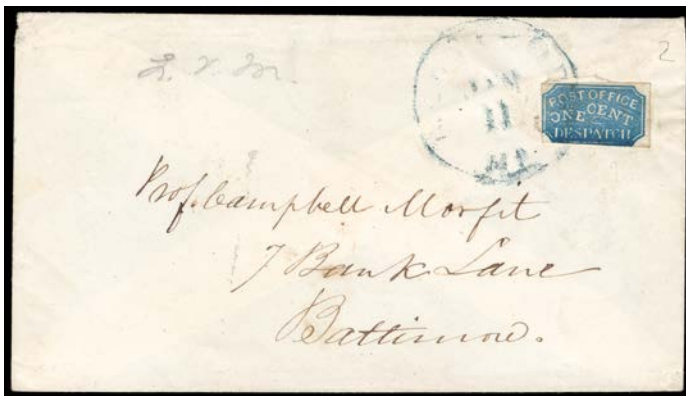 L. V. M.
2
JAN
11
Md.
POST OFFICE
ONE CENT
DESPATCH
Prof. Campbell Morfit
7 Bank Lane
Baltimore.